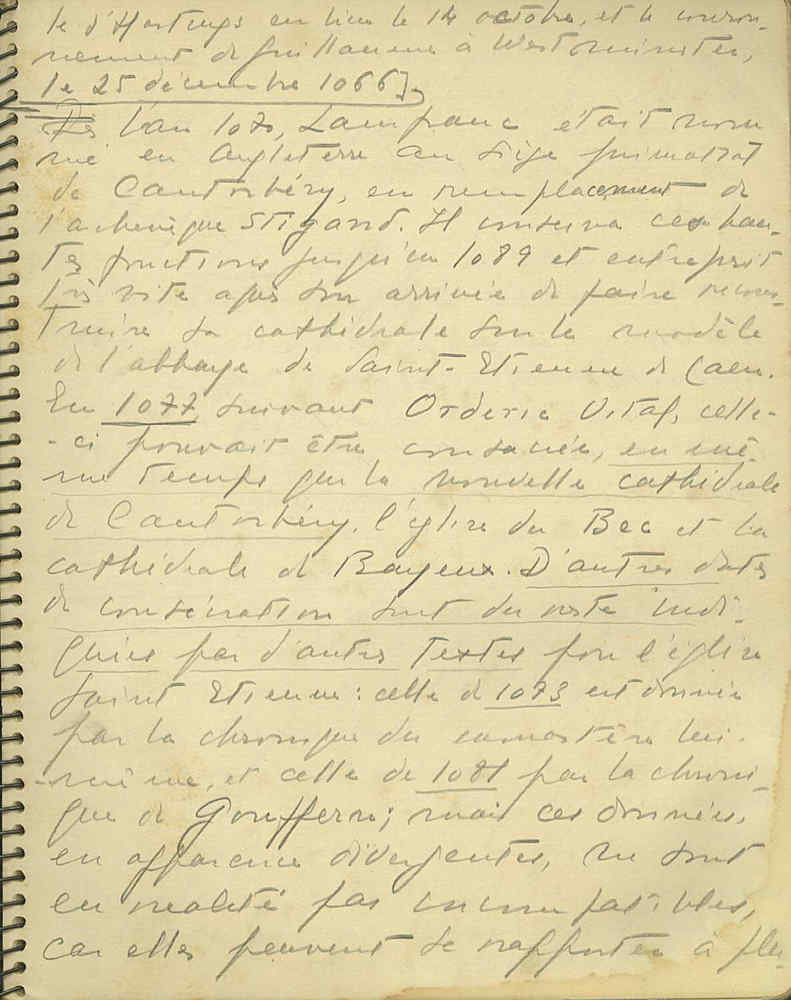 le d'Hastings eu lieu le 14 octobre, et le couron-
nement de Guillaume à Westminster,
le 25 décembre 1066],
Dès l'an 1070, Lanfranc était nom
mé en Angleterre au siège primatial
de Cantorbéry, en remplacement de
l'archevêque Stigand. Il conserva ces hau-
tes fonctions jusqu'en 1089 et entreprit
très vite après son arrivée de faire recons-
truire sa cathédrale sur le modèle
de l'abbaye de Saint-Etienne de Caen.
En 1077, suivant Orderic Vital, celle-
-ci pouvait être consacrée, en mê-
me temps que la nouvelle cathédrale
de Cantorbéry, l'église du Bec et la
cathédrale de Bayeux. D'autres dates
de consécration sont du reste indi-
quées par d'autres textes pour l'église
Saint Etienne : celle de 1073 est donnée
par la chronique du monastère lui-
-même, et celle de 1081 par la chroni-
que de Gouffern ; mais ces données,
en apparence divergentes, ne sont
en réalité pas incompatibles,
car elles peuvent se rapporter à plu